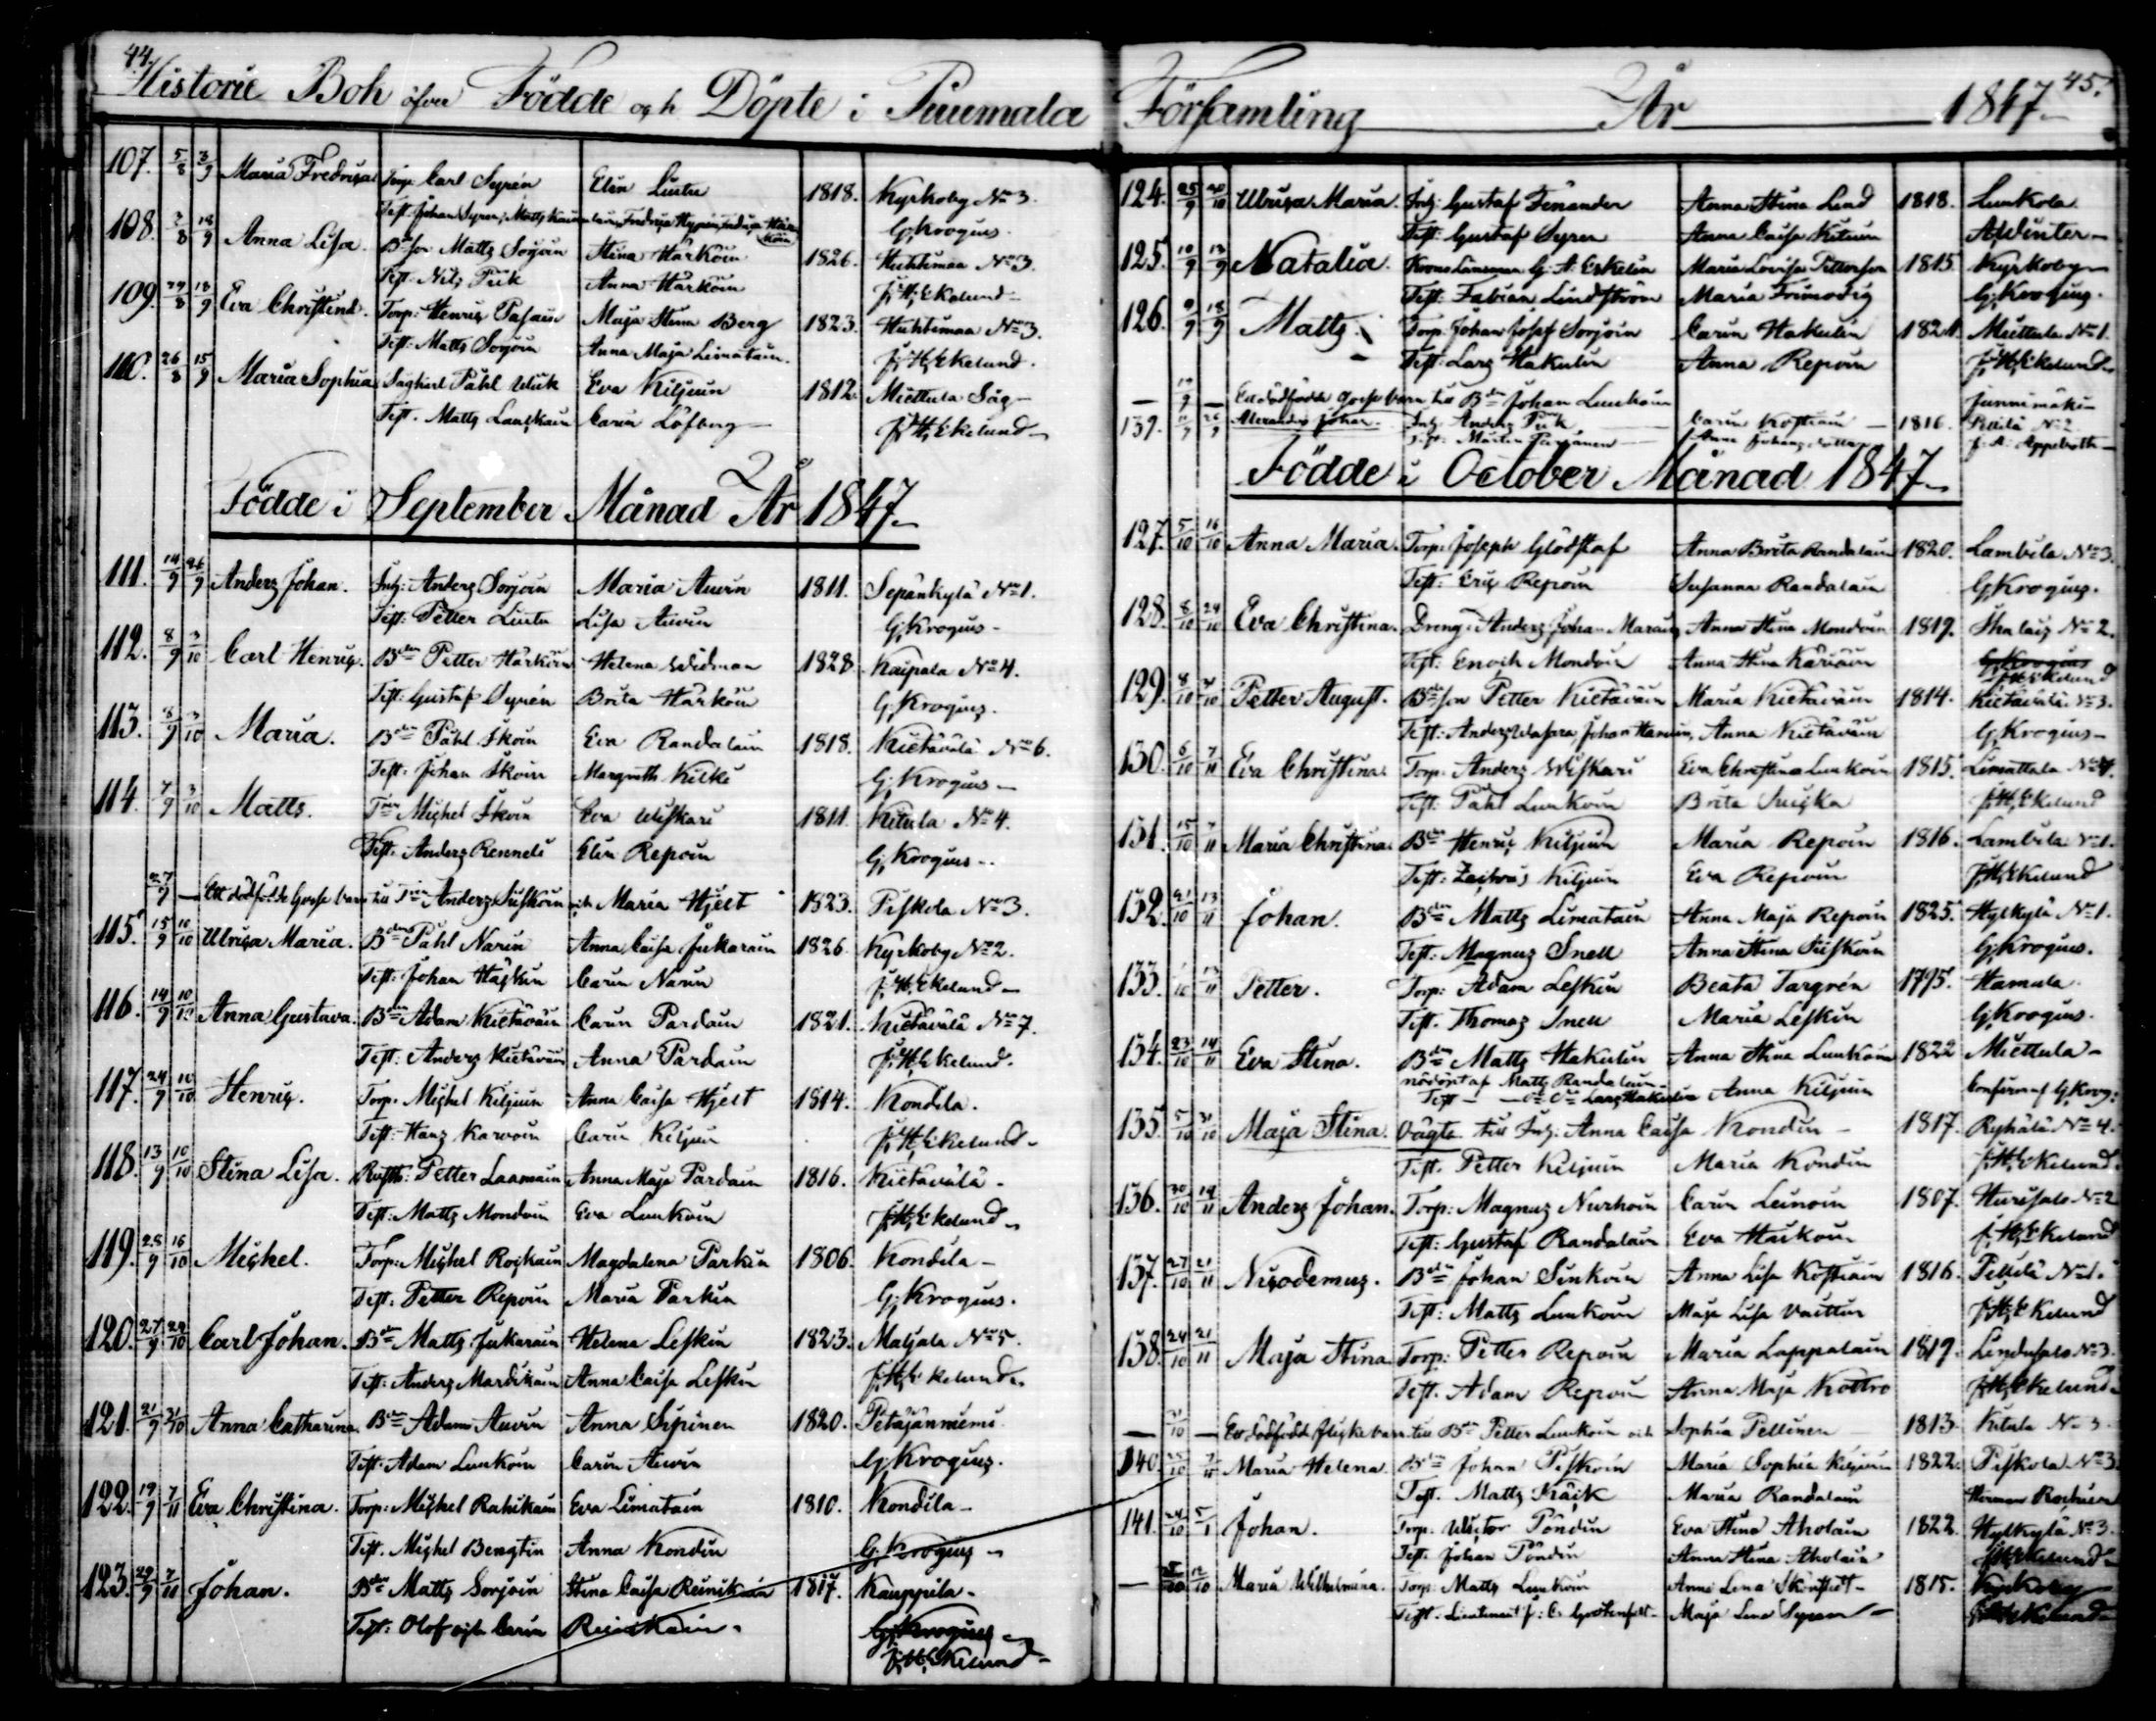 44.
Historie Bok öfver Födde och Döpte i Puumala
107. 5/8 3/9 Maria Fredrica Torp. Carl Syrén Elin Liutu 1818. Kyrkoby No 3.
Test. Johan Syren, Matts G. Krogius.
108. 2/8 18/9 Anna Lisa. Bdeson Matts Sorjoin Stina Härköin 1826. Huhtimaa No 3.
Test. Nils Anna Härköin J. H. Ekelund
109. 29/8 18/9 Eva Christina. Torp: Henric Pasain Maja Stina Berg 1823. Huhtimaa No 3.
Test: Matts Sorjoin Anna Maja Limatain. J. H. Ekelund.
110. 26/8 15/9 Maria Sophia Påhl Eva Kiljuin 1812. Miettula Såg
Test. Matts Lautkain Carin Löfberg J. H. Ekelund
Födde i September Månad År 1847.
111. 14/9 26/9 Anders Johan. Inh: Anders Sorjoin Maria Auvin 1811. Sepänkylä No 1.
Test: Petter Liutu Lisa Auvin G. Krogius
112. 8/9 3/10 Carl Henric. Bden Petter Härköin Helena Widman 1828 Kaipala No 4.
Test: Gustaf Syrén Brita Härköin G. Krogius.
113. 8/9 3/10 Maria. Bden Påhl Ikoin Eva Randalain 1818. Kietävälä No 6.
Test. Johan Ikoin Margreth Kilki G. Krogius
114. 7/9 3/10 Matts. Michel Ikoin Eva Wiskari 1811. Kitula No 4.
Test. Anders Renneli Elin Repoin G. Krogius
27/9 — Ett dödfödt Gossebarn till Anders Suskoin och Maria Hjelt 1823. Piskola No 3.
115. 15/9 10/10 Ulrica Maria. Bden Påhl Narin Anna Caisa Jukarain 1826 Kyrkoby No 2.
Test. Johan Häskin Carin Narin J. H. Ekelund
116. 14/9 10/10 Anna Gustava. Bden Adam Kietäväin Carin Pardain 1821. Kietävälä No 7.
Test: Anders Kietäväin Anna Pardain J. H. Ekelund.
117. 24/9 10/10 Henric. Torp. Michel Kiljuin Anna Caisa Hjelt 1814. Kondila.
Test: Hans Karvoin Carin Kiljuin J. H. Ekelund
118. 13/9 10/10 Stina Lisa. Petter Laamain Anna Maja Pardain 1816. Kietävälä
Test: Matts Mondoin Eva Lunkoin J. H. Ekelund
119. 28/9 16/10 Michel. Torp: Michel Roikain Magdalena Parkin 1806. Kondila
Test. Petter Repoin Maria Parkin G. Krogius.
120. 27/9 24/10 Carl Johan. Bden Matts Jukarain Helena Leskin 1823. Matjala No 5.
Test: Anders Mardikain Anna Caisa Leskin J. H. Ekelund
121. 21/9 31/10 Anna Catharina. Bden Adam Auvin Anna Sipinen 1820. Petäjänniemi
Test. Adam Lunkoin Carin Auvin G. Krogius.
122. 19/9 7/11 Eva Christina. Torp: Michel Rahikain Eva Limatain 1810. Kondila
Test. Michel Bengtin Anna Kondin G. Krogius
123. 29/9 7/11 Johan. Bden Matts Sorjoin Stina Caisa Reinikain 1817. Kauppila
Test: Olof och Carin Reinikain. G. Krogius
J. H. Ekelund
Församling År 1847 45.
124. 25/9 Ulrica Maria. Inh: Gustaf Fénander Anna Stina Lund 1818. Lunkola
Test: Gustaf Syren Anna Caisa A. Winter
125. 10/9 13/9 Natalia. Krono Länsman G. A. Eskelin Maria Lovisa Pettersson 1815 Kyrkoby
Test: Fabian Lindström Maria Frimodig G. Krogius.
126. 9/9 18/9 Matts. Torp. Johan Josef Sorjoin Carin Hakulin 1821. Miettula No 1.
Test: Lars Hakulin Anna Repoin J. H. Ekelund
— Ett dödfödde Gossebarn till Bden Johan Lunkoin Junnimäki
139. Alexander Johan. Inh. Anders Carin Kostiain 1816. No 2
Test. Anna J. A. Appelroth
Födde i October Månad 1847
127. 5/10 16/10 Anna Maria. Torp: Joseph Glödstaf Anna Brita Randalain 1820. Lambila No 3.
Test: Eric Repoin Susanna Randalain G. Krogius.
128. 8/10 24/10 Eva Christina. Dreng: Anders Johan Anna Stina Mondoin 1819. No 2.
Test: Enoch Mondoin Anna Stina Käriäin G. Krogius
J. H. Ekelund
129. 8/10 Petter August. Bdeson Petter Kietäväin Maria Kietäväin 1814. Kietävälä No 3.
Test: Anders Johan Anna Kietäväin G. Krogius
130. 6/10 7/11 Eva Christina. Torp. Anders Wiskari Eva Christina Lunkoin 1815. Limattala No 4.
Test: Påhl Lunkoin Brita J. H. Ekelund
131. 15/10 7/11 Maria Christina. Bden Henric Kiljuin Maria Repoin 1816. Lambila No 1.
Test: Zachris Kiljuin Eva Repoin J. H. Ekelund
132. 21/10 13/11 Johan. Bden Matts Limatain Anna Maja Repoin 1825. Hylkylä No 1.
Test: Magnus Snell Anna Stina Suskoin G. Krogius.
133. 13/11 Petter. Torp: Adam Leskin Beata Targrén 1795. Hamula.
Test. Thomas Snell Maria Leskin G. Krogius.
134. 23/10 14/11 Eva Stina. Bden Matts Hakulin Anna Stina Lunkoin 1822 Miettula
nöddöpt af Matts Randalain
Test Lars Hakulin Anna Kiljuin Confirm. af G. Krog:
135. 5/10 31/10 Maja Stina. Oägta till Inh: Anna Caisa Kondin 1817. Ryhälä No 4.
Test. Petter Kiljuin Maria Kondin J. H. Ekelund.
136. 30/10 14/11 Anders Johan. Torp: Magnus Nurhoin Carin Leinoin 1807. Hurisalo No 2
Test: Gustaf Randalain Eva J. H. Ekelund
137. 27/10 21/11 Nicodemus. Bden Johan Sinkoin Anna Lisa Kostiain 1816. No 1.
Test: Matts Lunkoin Maja Lisa Vaittin J. H. Ekelund
138. 24/10 21/11 Maja Stina Torp: Petter Repoin Maria Lappalain 1819. Lindusalo No 3.
Test. Adam Repoin Anna Maja Kottro J. H. Ekelund
— Ett dödfödt flickebarn till Bden Petter Lunkoin och Sophia Pellinen 1813 Kitula No 3
140. 25/10 7/11 Maria Helena Bden Johan Piskoin Maria Sophia Kiljuin 1822 Piskola No 3
Test. Matts Käik Maria Randalain
141. 24/10 5/1 Johan. Torp. Victor Pöndin Eva Stina Aholain 1822 Hylkylä No 3.
Test. Johan Pöndin Anna Stina Aholain J. H. Ekelund
— 12/10 Maria Wilhelmina. Torp: Matts Lunkoin Anna Lena 1815.
Test. Lieutenant Maja Lena Syren J. H. Ekelund